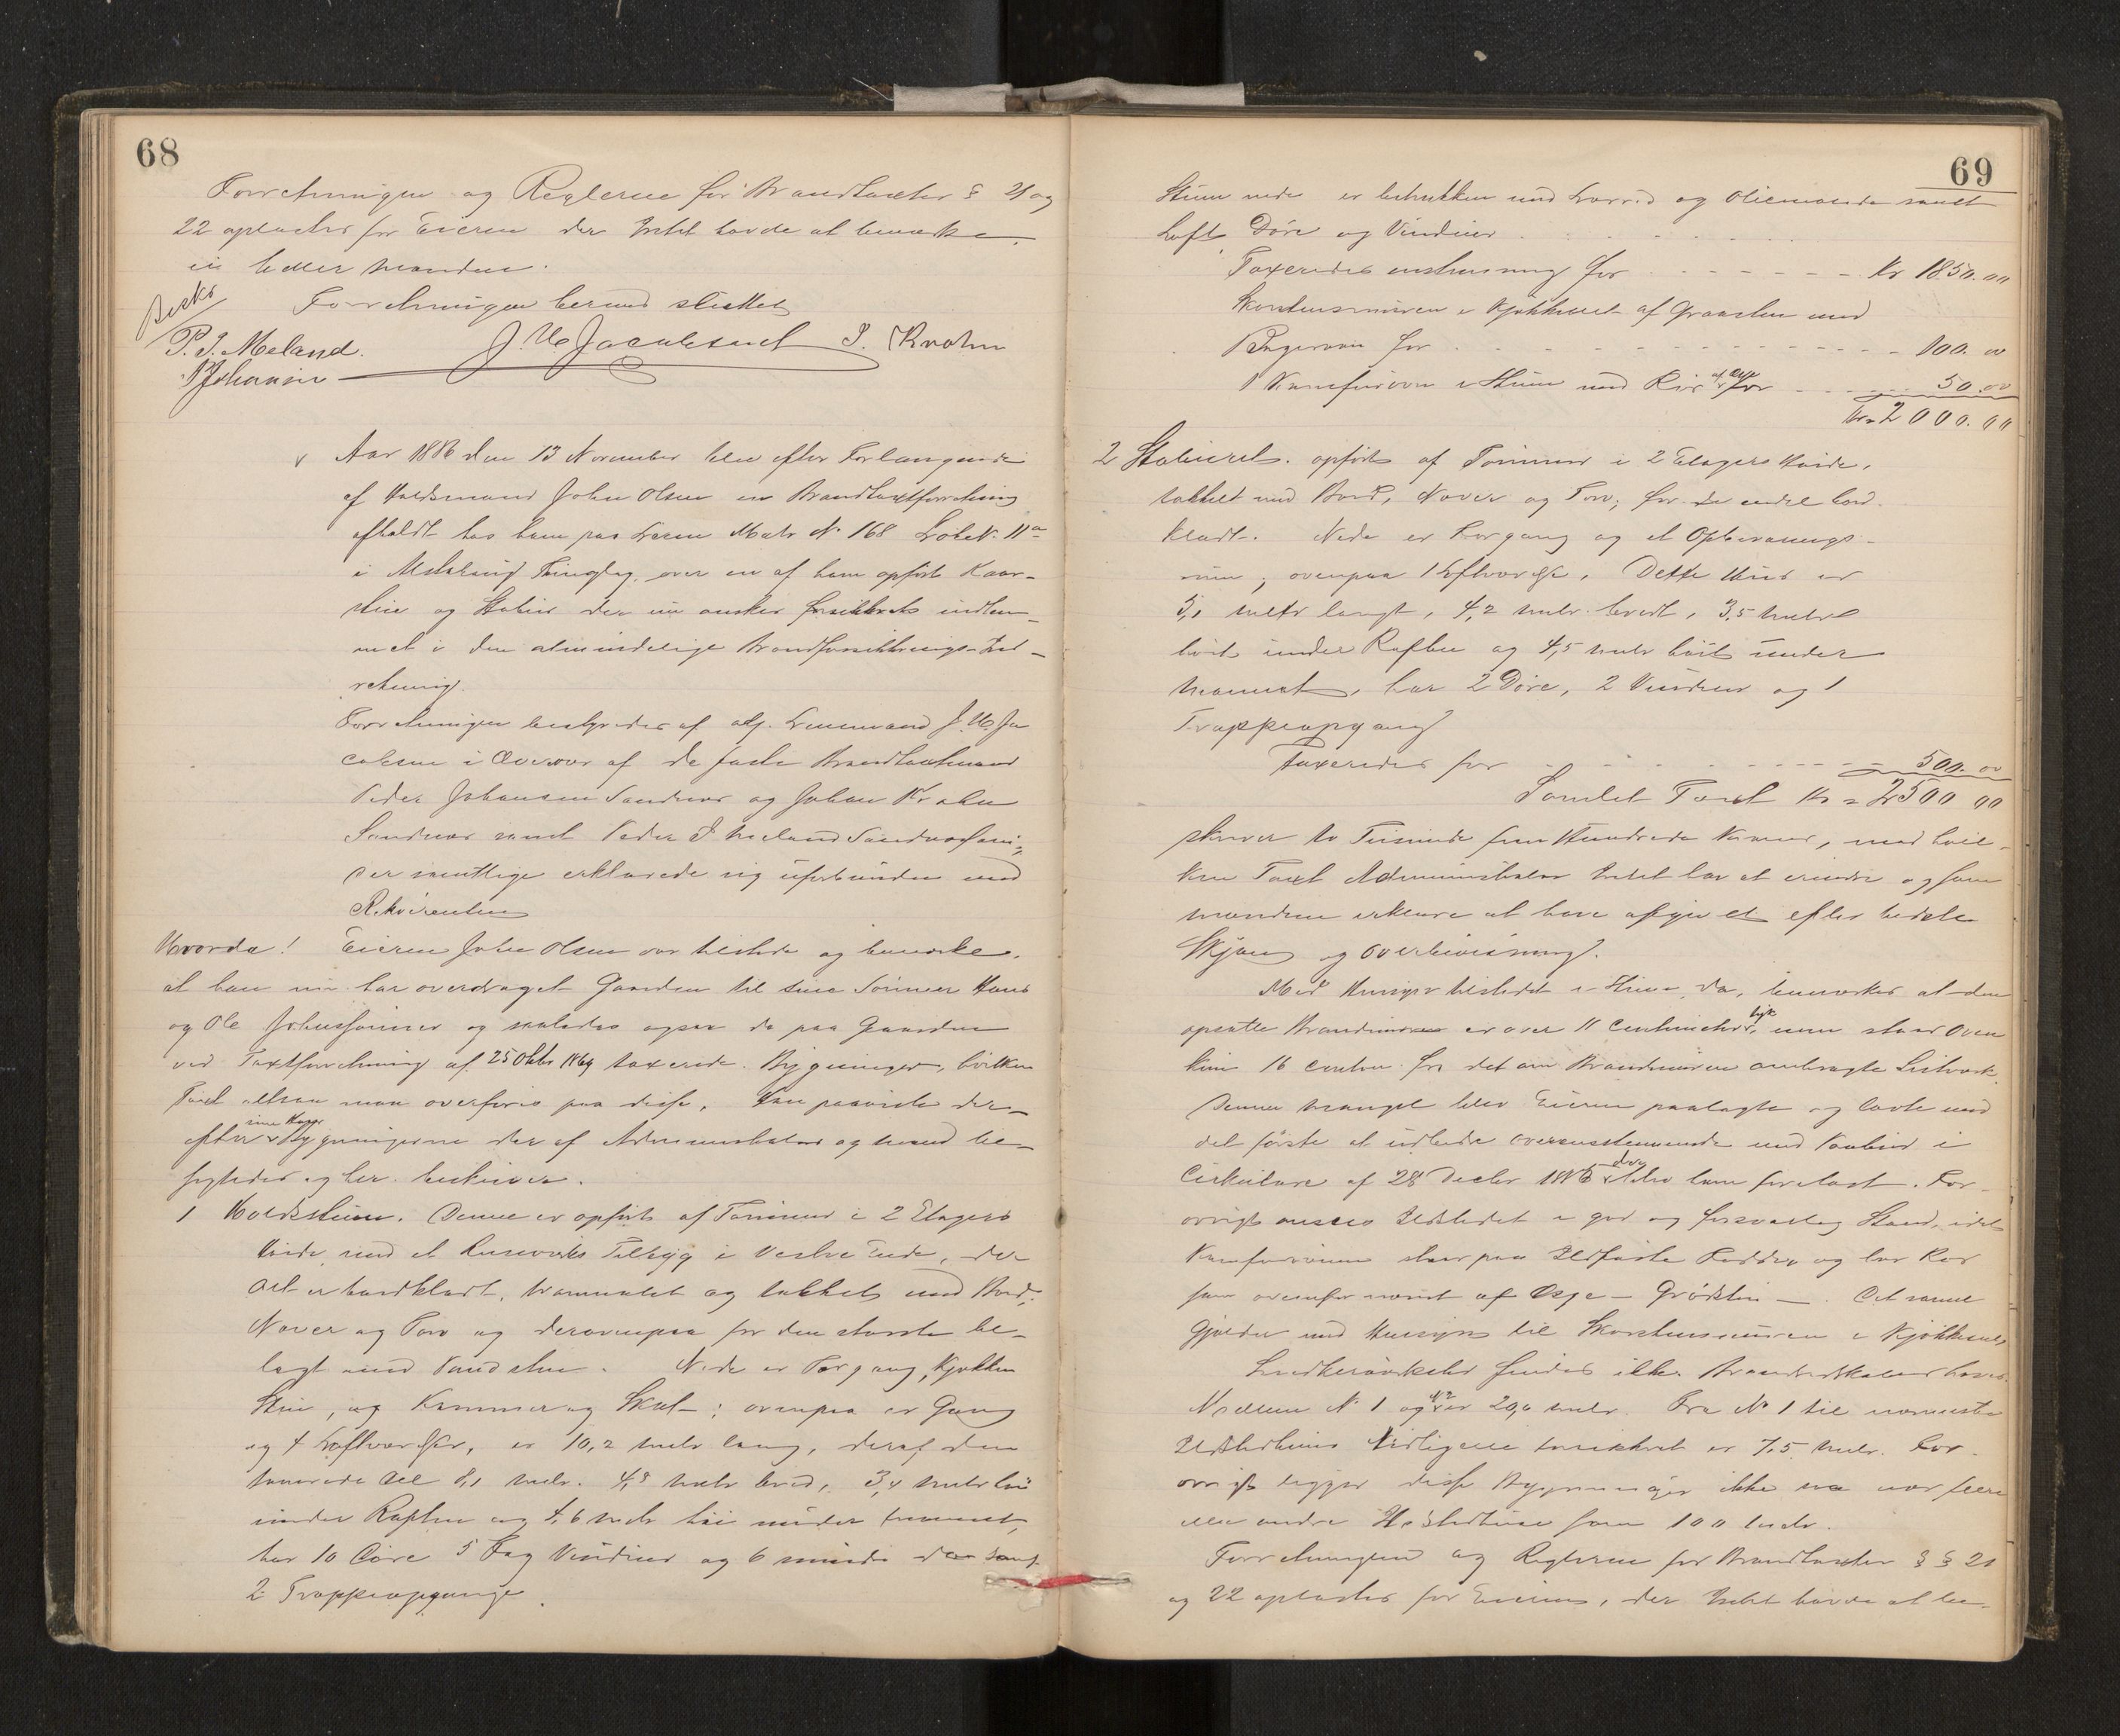 68
Forretningen og Reglerne for Brandtaxter § 21 og
22 oplæstes for Eieren der Intet havde at bemærke
ei heller Mændene.
Forretningen hermed sluttet
Besko
P. J. Meland. J. M. Jacobsen J. Krohn
P Johansen
Aar 1886 den 13 November blev efter Forlangende
af Huldsmand John Olsen en Brandtaxtforretning
afholdt hos ham paa Matr N. 168 Løbe N. 11a
i Thinglag, over en af ham opført Kaar-
stue og Stabur der nu ønskes forsikkrets indlem-
met i den almindelige Brandforsikkrings-Ind-
retning.
Forretningen bestyredes af Lensmand J. M. Ja
cobsen i Overvær af de faste Brandtaxtmænd
Peder Johansen Sandnæs og Johan Krohn
Sandnæs samt Peder J Meland
der samtlige erklærede sig uforbunden med
Rekvirenten
Hvorda! Eieren John Olsen var tilstede og bemærke,
at han nu har overdraget Gaarden til sine Sønner Hans
og Ole Johnssønner og saaledes ogsaa de paa Gaarden
ved Taxtforretning af 25 Oktbr 1869 taxerede Bygninger, hvilken
Taxt altsaa maa overføres paa disse. Han paaviste der-
efter Bygningerne der af Administrator og Mænd be-
sigtedes og her beskrives.
1 Huldstuen. Denne er opført af Tømmer i 2 Etagers
Høide med et Tilbyg i Vestre Ende, der
Alt er bordklædt, og takket med Bord,
Næver og Torv og derovenpaa for den største be-
lagt med . Nede er Forgang, Kjøkken
Stue, og Kammer og Skot; ovenpaa er Gang
og 4 Loftværelser, er 10,2 meter lang, deraf den
tømrede Del 8,1 meter. 4,8 meter bred, 3,4 meter høi
under Raften og 4,6 meter høi under Mønnet,
har 10 Døre 5 Fag Vinduer og 6 mindre samt
2 Trappeopgange.
69
Stuen nede er betrukken med Lærred og Oliemalede samt
Loft, Døre og Vinduer
Taxeredes for Kr 1850.00
Skorstensmuren i Kjøkkenet af Graasten med
Bagerovn for 100.00
1 Kamfurovn i Stuen med Rør for 50.00
Kr 2000.00
2 Staburet. opført af Tømmer i 2 Etagers Høide,
takket med Bord, Næver og Torv; for endel bord-
klædt. Nede er Forgang og et Opbevarings-
rum; ovenpaa 1 Loftværelse. Dette Hus er
5,1 meter langt, 4,2 meter bredt, 3,5 meter
høit under Raften og 4,5 meter høit under
Mønnet, har 2 Døre, 2 Vinduer og 1
Trappeopgang
Taxeredes for 500.00
Samlet Taxt Kr 2500 00
skriver to Tusinde fem Hundrede Kroner, mod hvil-
ken Taxt Administrator Intet har at erindre og som
Mændene erklære at have afgivet efter bedste
Skjøn og Overbevisning.
Med Hensyn Ildstedet i Stuen da, bemærkes at den
opsatte Brandmur er over 11 Centimeter tyk, men staar Oven
kun 16 Centm. fra det om Brandmuren anbragte Listværk.
Denne Mangel blev Eieren paalagte og lovte med
det første at udbedre overensstemmende med i
Cirkulære af 28 Decbr der blev ham forelæst. For-
øvrigt ansees Ildstedet i god og forsvarlig Stand, idet
Kamfurovnen staar paa Ildfaste Fødder og har Rør
som ovenfor nævnt af Grødsten. Det samme
gjælder med Hensyn til Skorstensmuren i Kjøkkenet
Snedkerværksted findes ikke. Brandredskaber haves.
Mellem N. 1 og N 2 er 20,0 meter. Fra N. 1 til nærmeste
forsikkret er 7.5 meter. For-
øvrigt ligger disse Bygninger ikke saa nær flere
eller andre Ildstedhuse som 100 meter.
Forretningen og Reglerne for Brandtaxter §§ 21
og 22 oplæstes for Eieren, der Intet havde at be-